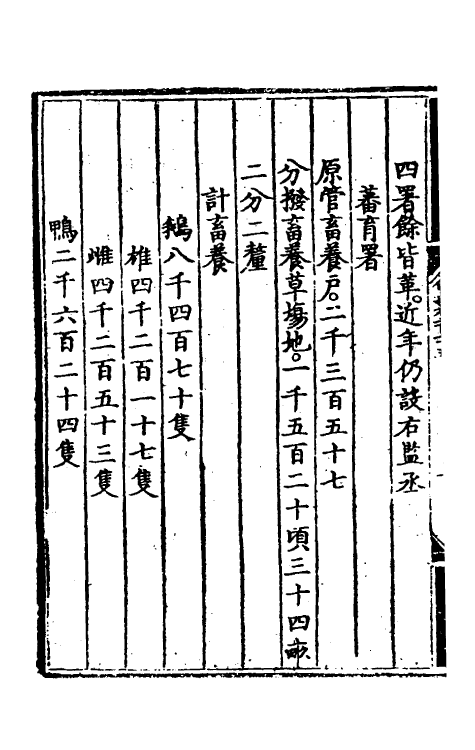 四署餘皆革。近年仍設右監丞
蕃育署
原管畜養户。二千三百五十七
分撥畜養草塲地。一千五百二十頃三十四畝
二分二釐
計畜養
鵝八千四百七十隻
雄四千二百一十七隻
雌四千二百五十三隻
鴨二千六百二十四隻